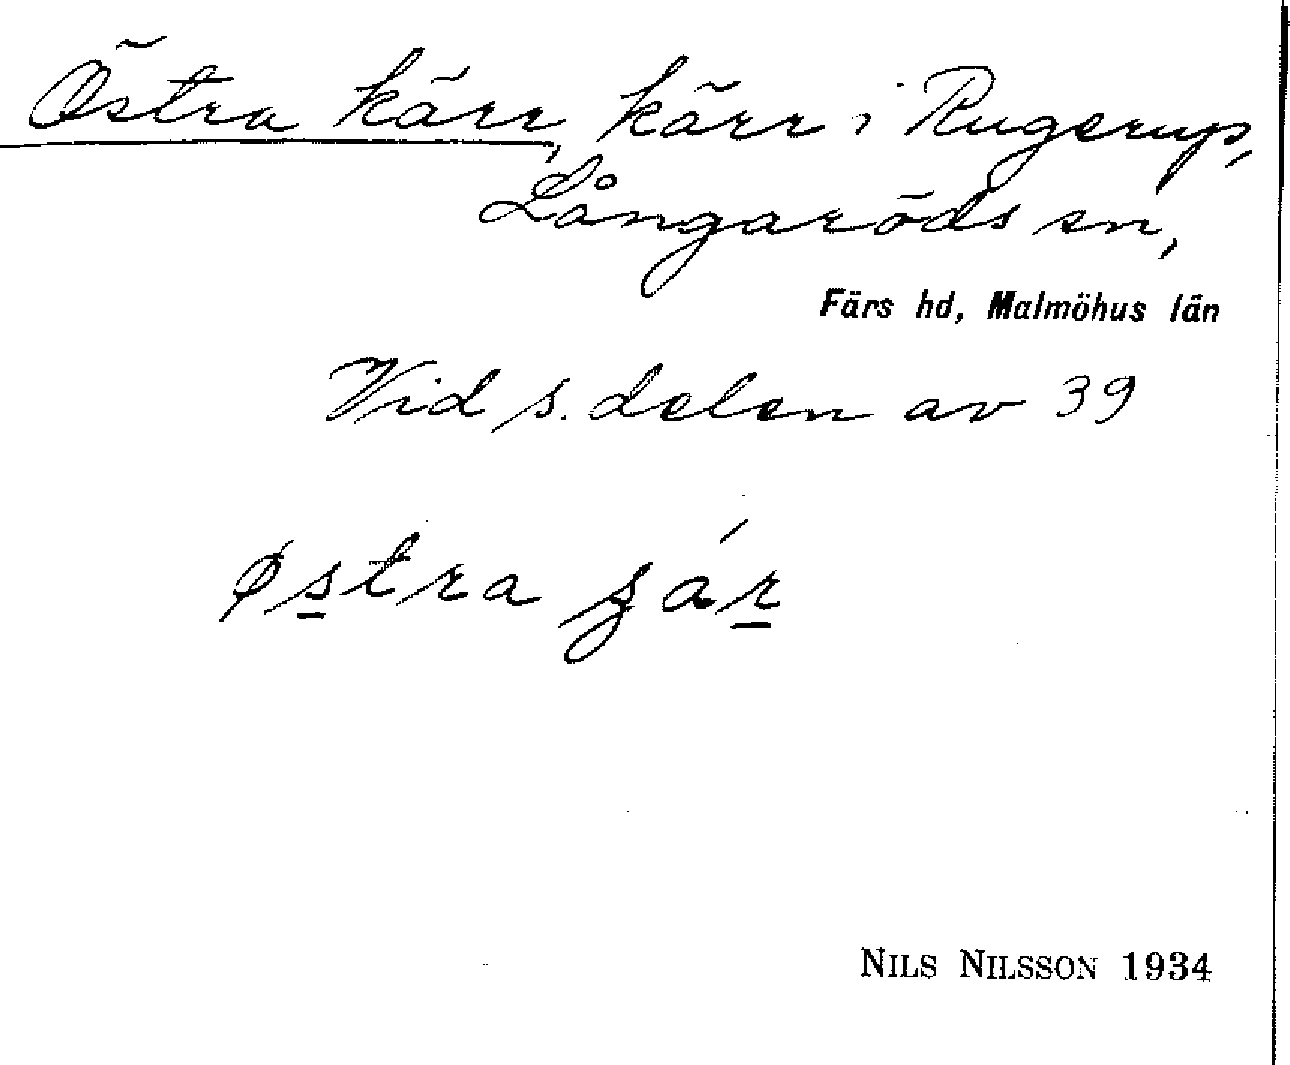 Östra kärr, kärr i Rugerup,
Långaröds sn,
Färs hd, Malmöhus län
Vid s. delen av 39
østra
NILS NILSSON 1934